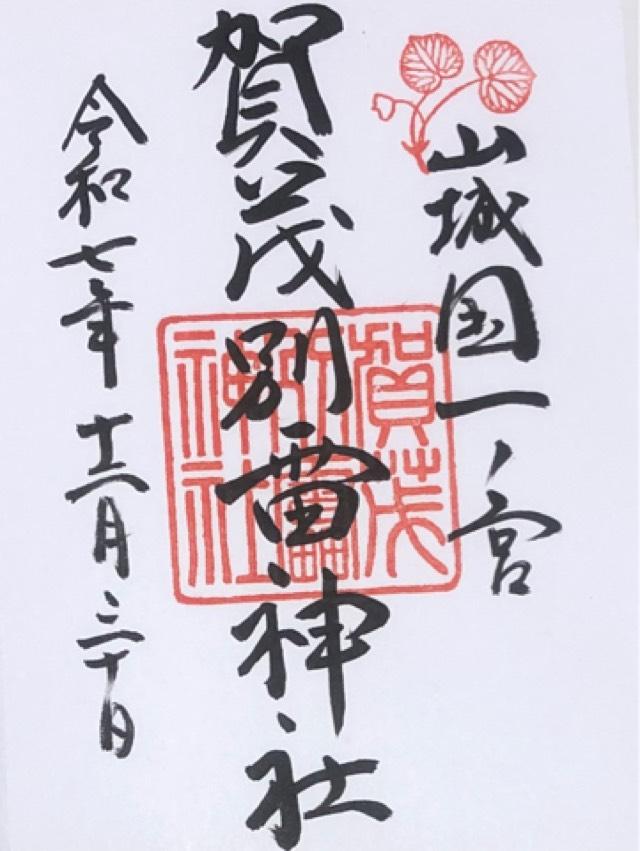 山城国一ノ宮
賀茂別雷神社
賀茂
別雷
神社
令和七年十二月三十日